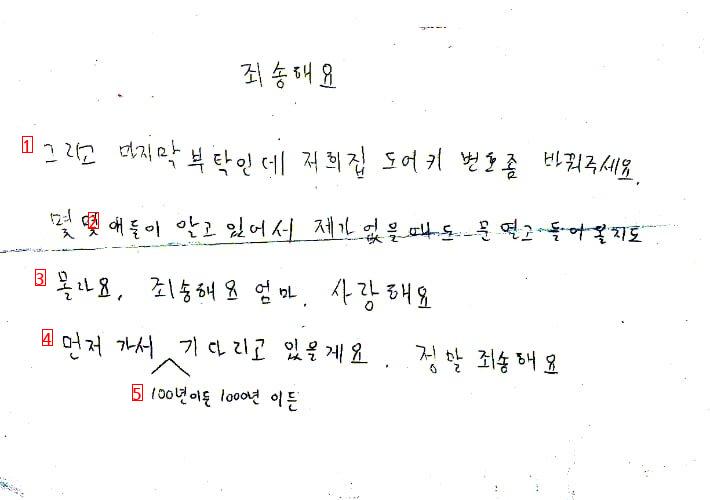 죄송해요
1 그리고 마지막 부탁인데 저희집 도어키 번호좀 바꿔주세요.
몇몇 2 애들이 알고 있어서 제가 없을때도 문 열고 들어올지도
3 몰라요. 죄송해요 엄마. 사랑해요
4 먼저 가서 기다리고 있을게요. 정말 죄송해요
5 100년이든 1000년 이든